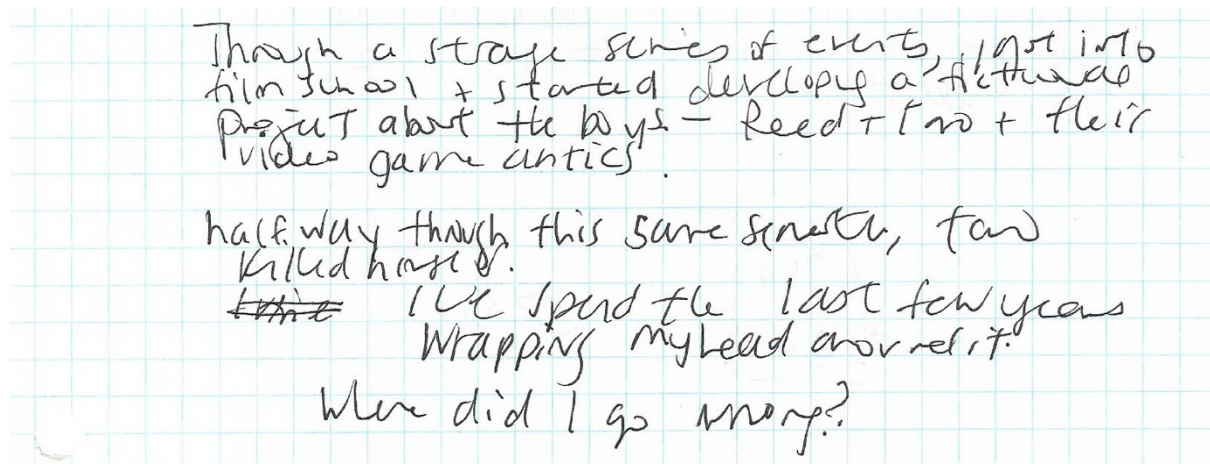 Through a strange series of events, I got into
film school + started developing a fictional
project about the boys - Reed + Tao + their
video game antics.
halfway through this same semester, Tao
killed himself.
I've spend the last few years
wrapping my head around it.
Where did I go wrong?